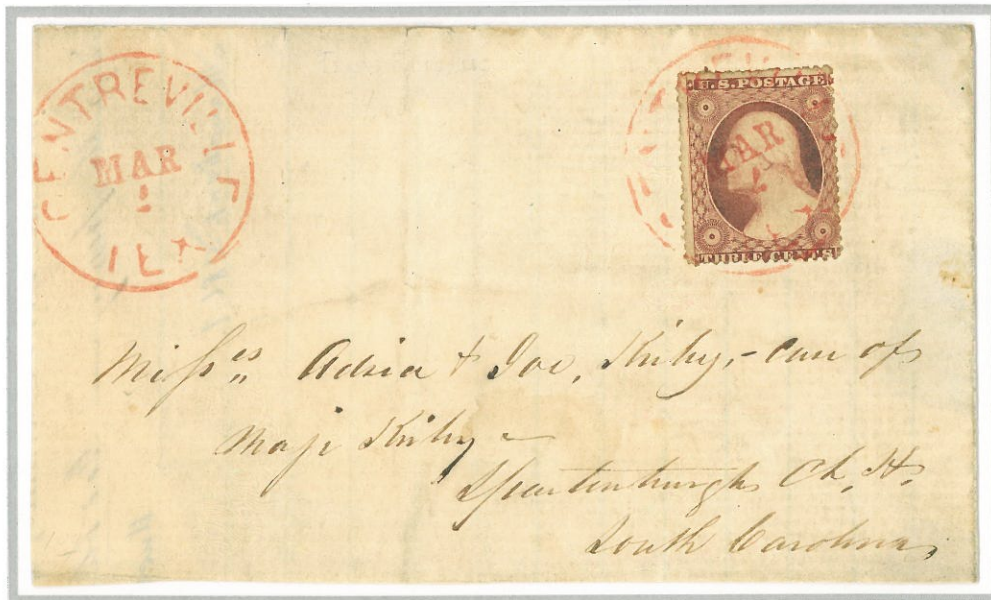 CENTREVILLE
MAR
1
TEX
U.S. POSTAGE
MAR
1
THREE CENTS
Misses Adria & Joe, Kirby, - care of
Maj. Kirby -
Spartenburgh Ct. Hs.
South Carolina,